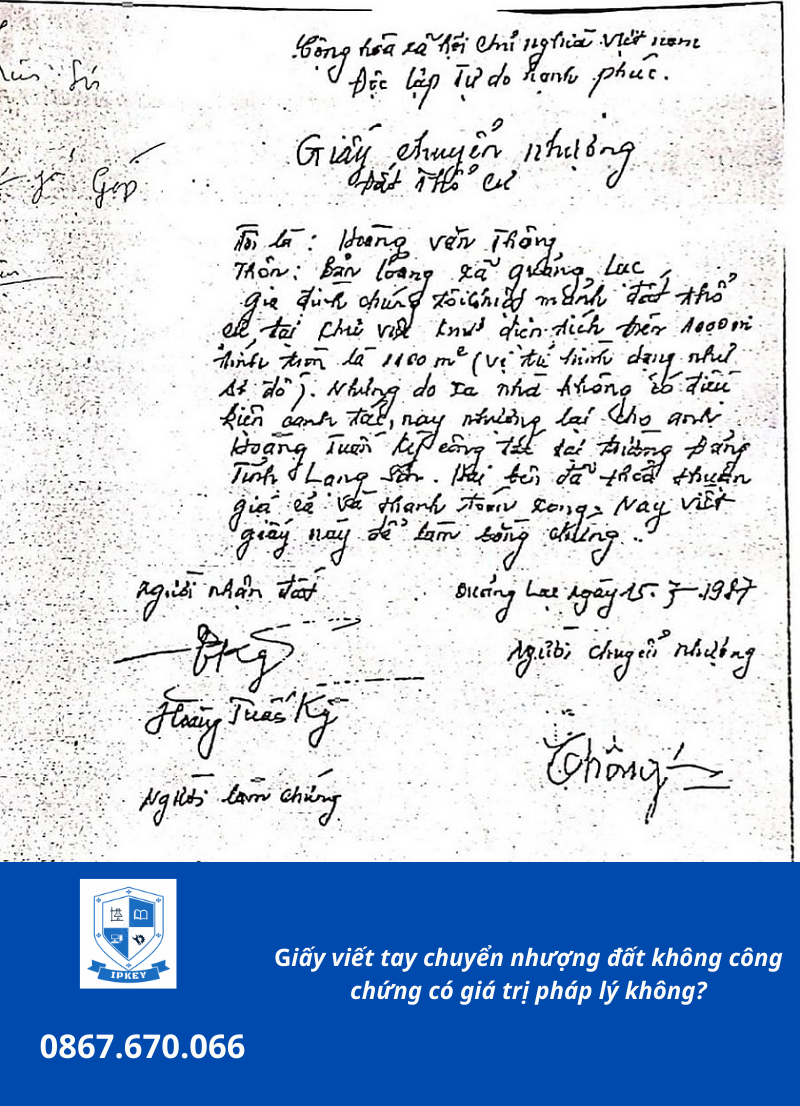 Cộng hòa xã hội chủ nghĩa Việt nam
Độc lập Tự do hạnh phúc.
Giấy chuyển nhượng
Đất Thổ Cư
Gấp
Tôi là: Hoàng Văn Thông
Thôn: Bản Loỏng xã Quảng Lạc
gia đình chúng tôi có mảnh đất thổ
cư tại diện tích trên
là 1100 m² (vị trí hình dạng như
sơ đồ). Nhưng do xa nhà không có điều
kiện canh tác, nay nhường lại cho anh
Hoàng Tuấn Kỳ công tác tại trường Đảng
Tỉnh Lạng Sơn. Hai bên đã thỏa thuận
giá cả và thanh toán xong. Nay viết
giấy này để làm bằng chứng..
Người nhận đất
Quảng Lạc ngày 15. 1987
Người chuyển nhượng
Hoàng Tuấn Kỳ
Thông
Người làm chứng
IPKEY
Giấy viết tay chuyển nhượng đất không công
chứng có giá trị pháp lý không?
0867.670.066